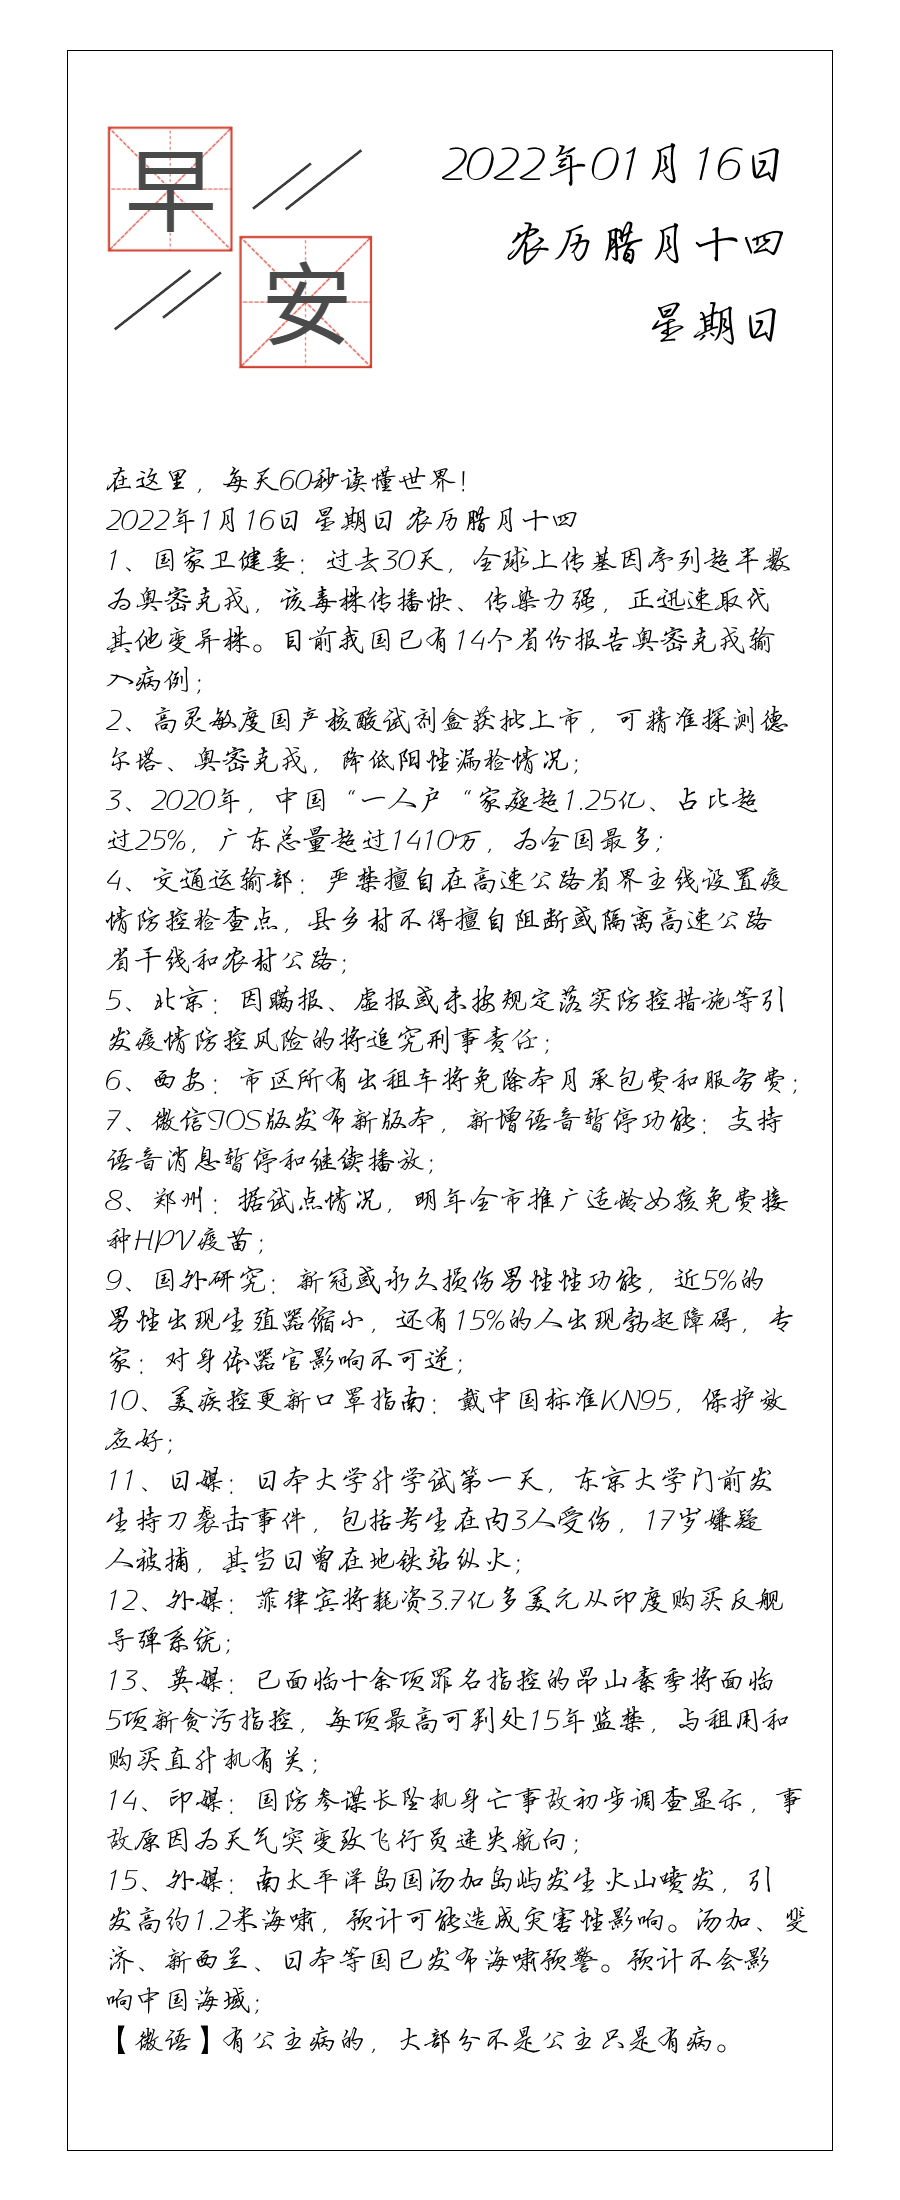 早安
2022年01月16日
农历腊月十四
星期日
在这里，每天60秒读懂世界！
2022年1月16日 星期日 农历腊月十四
1、国家卫健委：过去30天，全球上传基因序列超半数
为奥密克戎，该毒株传播快、传染力强，正迅速取代
其他变异株。目前我国已有14个省份报告奥密克戎输
入病例；
2、高灵敏度国产核酸试剂盒获批上市，可精准探测德
尔塔、奥密克戎，降低阳性漏检情况；
3、2020年，中国“一人户“家庭超1.25亿、占比超
过25%，广东总量超过1410万，为全国最多；
4、交通运输部：严禁擅自在高速公路省界主线设置疫
情防控检查点，县乡村不得擅自阻断或隔离高速公路
省干线和农村公路；
5、北京：因瞒报、虚报或未按规定落实防控措施等引
发疫情防控风险的将追究刑事责任；
6、西安：市区所有出租车将免除本月承包费和服务费；
7、微信IOS版发布新版本，新增语音暂停功能：支持
语音消息暂停和继续播放；
8、郑州：据试点情况，明年全市推广适龄女孩免费接
种HPV疫苗；
9、国外研究：新冠或永久损伤男性性功能，近5%的
男性出现生殖器缩小，还有15%的人出现勃起障碍，专
家：对身体器官影响不可逆；
10、美疾控更新口罩指南：戴中国标准KN95，保护效
应好；
11、日媒：日本大学升学试第一天，东京大学门前发
生持刀袭击事件，包括考生在内3人受伤，17岁嫌疑
人被捕，其当日曾在地铁站纵火；
12、外媒：菲律宾将耗资3.7亿多美元从印度购买反舰
导弹系统；
13、英媒：已面临十余项罪名指控的昂山素季将面临
5项新贪污指控，每项最高可判处15年监禁，与租用和
购买直升机有关；
14、印媒：国防参谋长坠机身亡事故初步调查显示，事
故原因为天气突变致飞行员迷失航向；
15、外媒：南太平洋岛国汤加岛屿发生火山喷发，引
发高约1.2米海啸，预计可能造成灾害性影响。汤加、斐
济、新西兰、日本等国已发布海啸预警。预计不会影
响中国海域；
【微语】有公主病的，大部分不是公主只是有病。